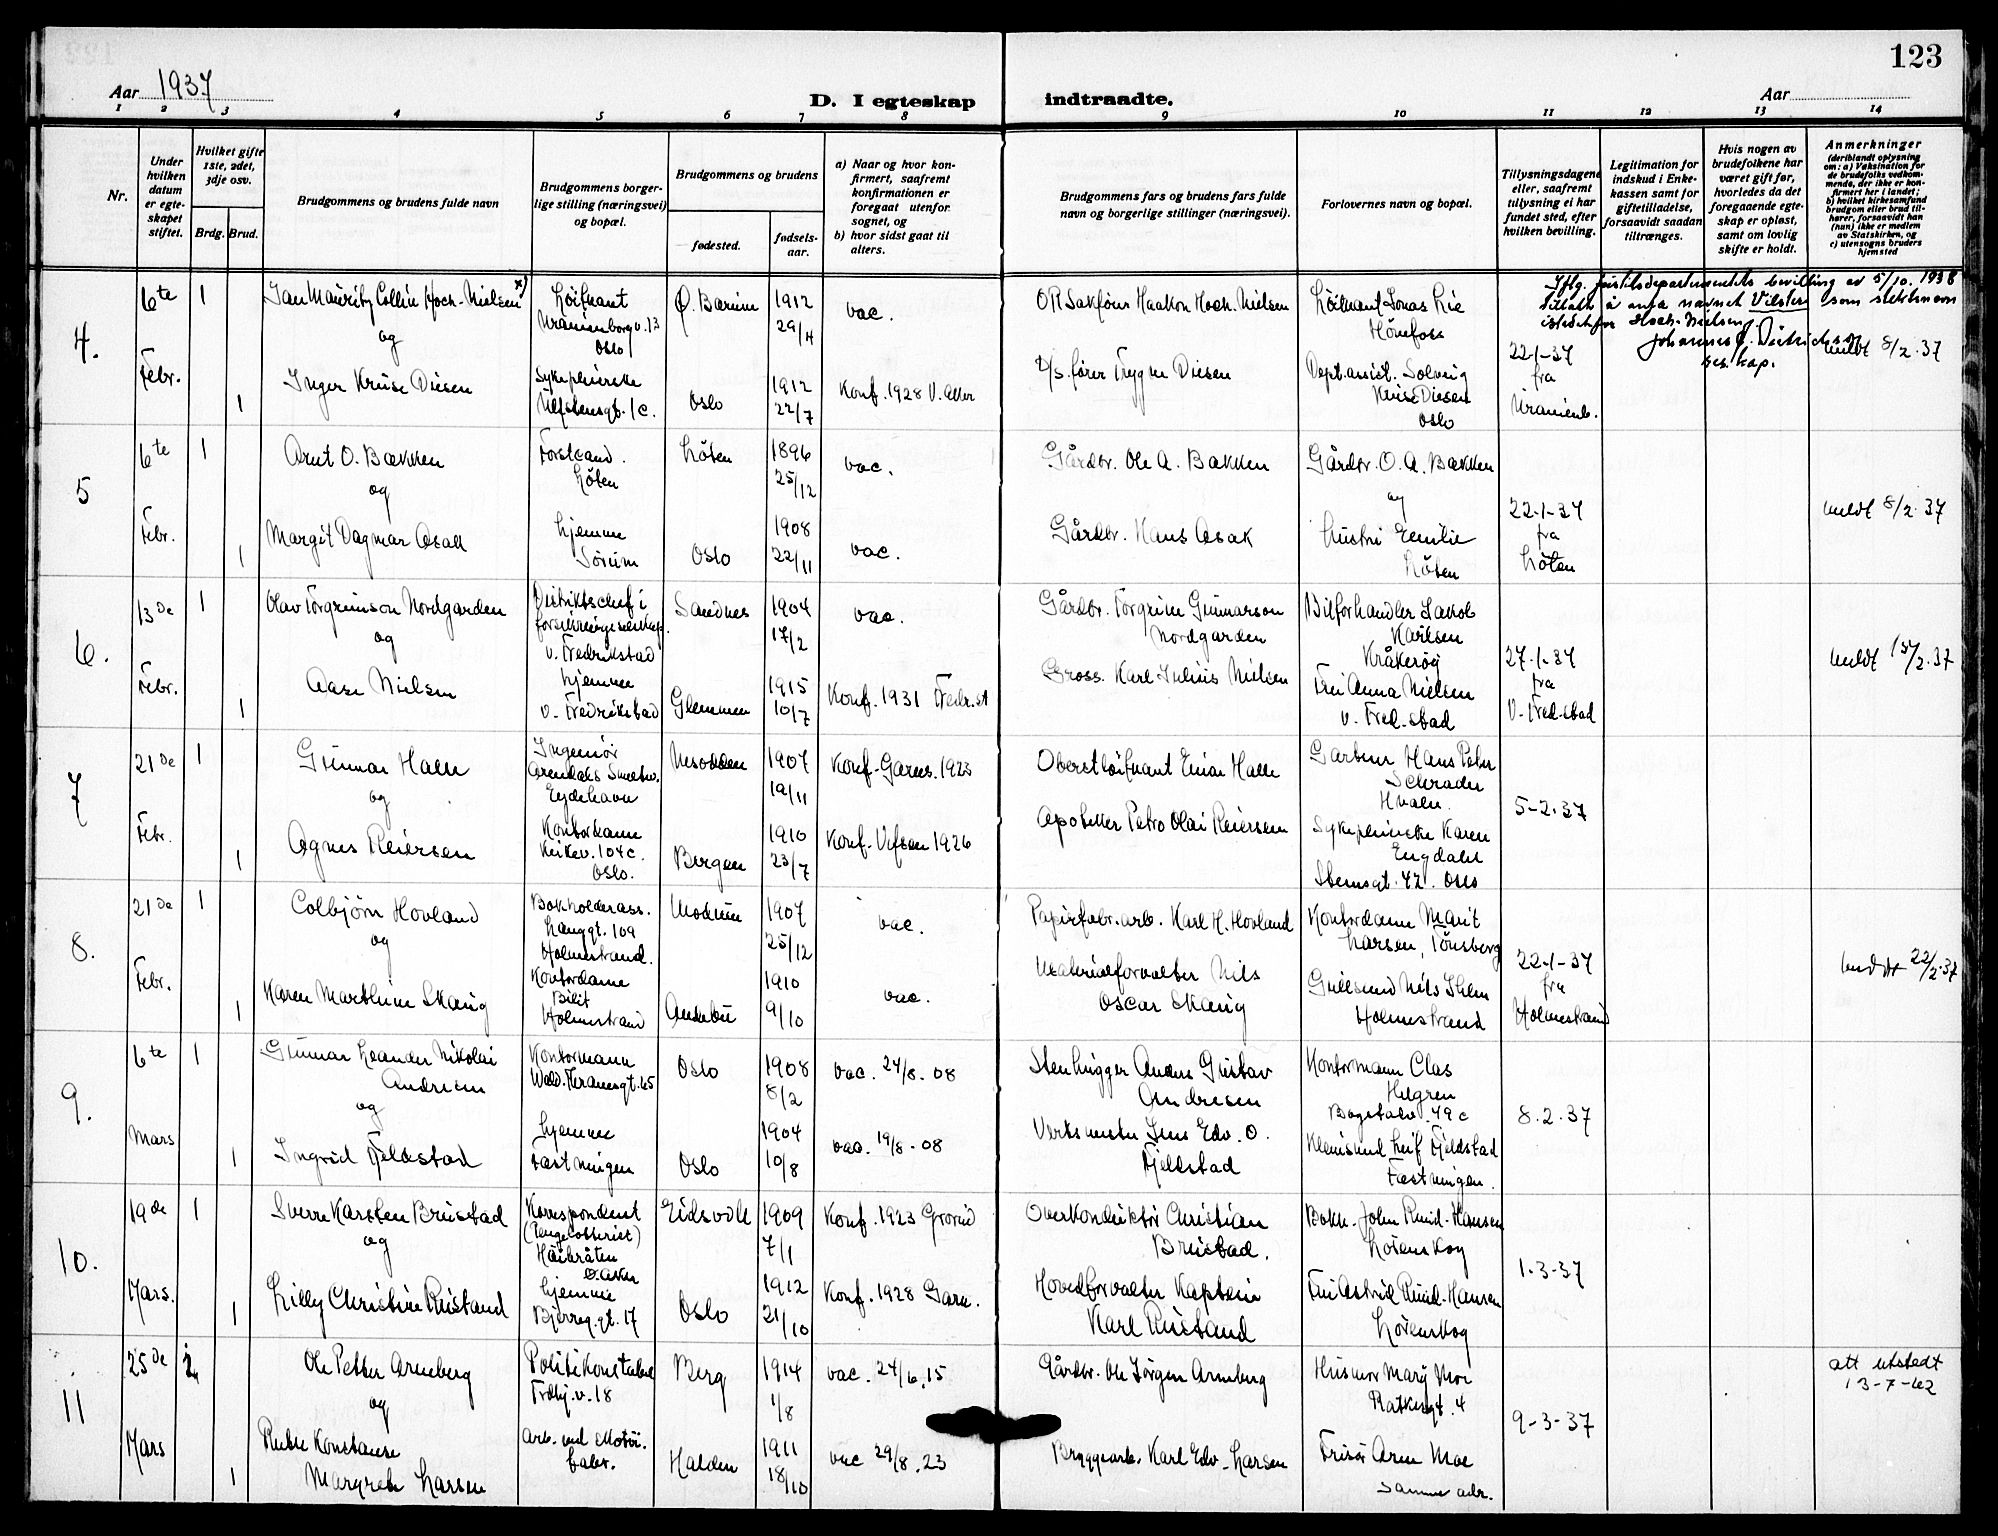 123
Aar 1937
D. I egteskap indtraadte.
Aar
1 2 3 4 5 6 7 8 9 10 11 12 13 14
Nr.
Under hvilken datum er egteskapet stiftet.
Hvilket gifte 1ste, 2det, 3dje osv.
Brdg. Brud.
Brudgommens og brudens fulde navn
Brudgommens borgerlige stilling (næringsvei) og bopæl.
Brudgommens og brudens
fødested.
fødselsaar.
a) Naar og hvor konfirmert, saafremt konfirmationen er foregaat utenfor sognet, og
b) hvor sidst gaat til alters.
Brudgommens fars og brudens fars fulde navn og borgerlige stillinger (næringsvei).
Forlovernes navn og bopæl.
Tillysningsdagene eller, saafremt tillysning ei har fundet sted, efter hvilken bevilling.
Legitimation for indskud i Enkekassen samt for giftetilladelse, forsaavidt saadan tiltrænges.
Hvis nogen av brudefolkene har været gift før, hvorledes da det foregaaende egteskap er opløst, samt om lovlig skifte er holdt.
Anmerkninger
(deriblandt oplysning om: a) Vaksination for de brudefolks vedkommende, der ikke er konfirmert her i landet; b) hvilket kirkesamfund brudgom eller brud tilhører, forsaavidt han (hun) ikke er medlem av Statskirken, og c) utensogns bruders hjemsted
4.
6te Febr.
1
Hoch-Nielsen x)
Løitnant
Uranienborgv. 13
Oslo
Ø. Bærum
1912
29/4
vac.
ORSakfører Haakon Hoch-Nielsen
Løitnant Jonas Lie
Hönefoss
Iflg. justisdepartementets bevilling av 5/10. 1938
tillatt å anta navnet Vilster som slektsnavn
istedetfor Hoch-Nielsen.
res. kap.
og
Inger Kruse Diesen
1
Sykepleierske
Oslo
1912
22/7
Konf. 1928 V. Aker
D/s. fører Trygve Diesen
Dept. assist. Solveig
Kruse Diesen
Oslo
22-1-37
fra
Uranienb.
meldt 8/2. 37
5
6te Febr.
1
Arnt O. Bækken
og
Forstcand.
Löten
Löten
1896
25/12
vac.
Gårdbr. Ole A. Bækken
Gårdbr. O. A. Bækken
og
Margit Dagmar Asak
1
hjemme
Sörum
Oslo
1908
22/11
vac.
Gårdbr. Hans Asak
Hustru Emilie
Löten
22-1-37
fra
Löten
meldt 8/2. 37
6.
13de Febr.
1
Olav Torgrimson Nordgarden
og
Distriktschef i
forsikringsselskap.
v. Fredrikstad
Sandnes
1904
17/2
vac.
Gårdbr. Torgrim Gunnarson
Nordgarden
Bilforhandler Jakob
Karlsen
Kråkerøy
Aase Nielsen
1
hjemme
v. Fredrikstad
Glemmen
1915
10/7
Konf. 1931 Fredr.st
Gross. Karl Julius Nielsen
Fru Anna Nielsen
v. Fred.stad
27-1-37
fra
V. Fred.stad
meldt 15/2. 37
7
21de Febr.
1
Gunnar Halle
og
Ingeniör
Arendals Smeltev.
Eydehavn
Nesodden
1907
19/11
Konf. Garns. 1923
Oberstløitnant Einar Halle
Gartner Hans Peter
Schrader
Hvaler.
Agnes Reiersen
1
Kontordame
Kirkev. 104c.
Oslo.
Bergen
1910
23/7
Konf. Vefsen 1926
Apoteker Petro Olai Reiersen
Sykepleierske Karen
Engdahl
Stensgt. 42. Oslo
5-2-37
8.
21de Febr.
1
Colbjörn Hovland
og
Bokholderass.
Langgt. 109
Holmestrand.
Modum
1907
25/12
vac.
Papirfabr.arb. Karl H. Hovland
Kontordame Marit
Larsen, Tönsberg
Karen Marthine Skaug
1
Kontordame
Holmestrand
Andebu
1910
9/10
vac.
Materialforvalter Nils
Oscar Skaug
Gullsmed Nils
Holmestrand
22-1-37
fra
Holmestrand
meldt 22/2-37
9.
6te Mars
1
Gunnar Leander Nikolai
Andresen
og
Kontormann
Wald. Thranesgt. 65
Oslo
1908
8/2
vac. 24/8. 08
Stenhugger Anders Gustav
Andresen
Kontormann Clas
Helgren
Bogstadv. 49c
Ingrid Fjeldstad
1
hjemme
Fæstningen
Oslo
1904
10/8
vac. 19/8. 08
Verksmester Jens Edv. O.
Fjeldstad
Leif Fjeldstad
Fæstningen.
8.2.37
10.
19de Mars.
1
Sverre Karsten Brustad
og
Korrespondent
Haugråten
Ø. Aker
Eidsvoll
1909
7/1
Konf. 1923 Grorud
Overkonduktör Christian
Brustad.
Bokh. John Ruud-Hansen
Lörenskog
Lilly Christine Rustand
1
hjemme
Bjerreg.gt. 17
Oslo
1912
21/10
Konf. 1928 Garn.
Hovedforvalter Kaptein
Karl Rustand
Fru Astrid Ruud-Hansen
Lörenskog
1-3-37
11
25de Mars
Ole Petter Arneberg
og
Politikonstabel
Trolij.v. 18
Berg
1914
1/8
vac. 24/6. 15
Gårdbr. Ole Jörgen Arneberg
Husmor Mary Moe
Ratkesgt. 4
Ruth Konstanse
Margrete Larsen
1
Arb. ved Motor.
fabr.
Halden
1911
18/10
vac 29/8. 23
Bryggearb. Karl Edv. Larsen
Frisör Arne Moe
samme adr.
9-3-37
att utstedt
13-7-42